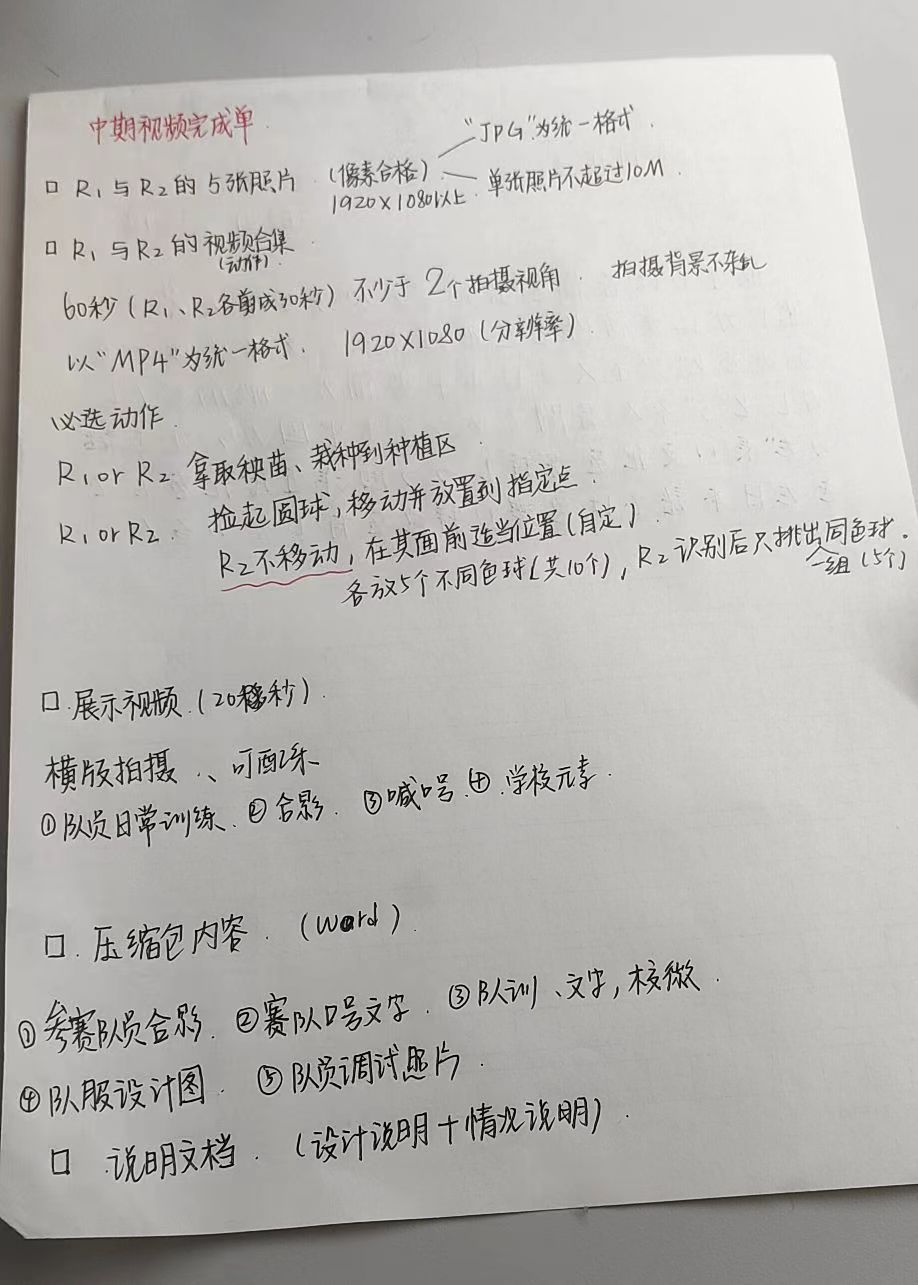 中期视频完成单
"JPG"为统一格式.
□ R₁与R₂的5张照片 (像素合格) 单张照片不超过10M.
1920×1080以上
□ R₁与R₂的视频合集.
(动作).
60秒(R₁、R₂各剪成30秒) 不少于2个拍摄视角. 拍摄背景不杂乱
以"MP4"为统一格式. 1920×1080(分辨率).
必选动作.
R₁ or R₂ 拿取秧苗、栽种到种植区.
R₁ or R₂. 捡起圆球,移动并放置到指定点.
R₂不移动,在其面前适当位置(自定).
各放5个不同色球(共10个),R₂识别后只挑出同色球.
一组(5个)
□.展示视频.(20秒).
横版拍摄、可配乐
①队员日常训练.②合影.③喊口号.④.学校元素.
□.压缩包内容.(word).
①参赛队员合影.②赛队口号文字.③队训、文字,校徽.
④队服设计图.⑤队员调试照片.
□ .说明文档.(设计说明+情况说明).